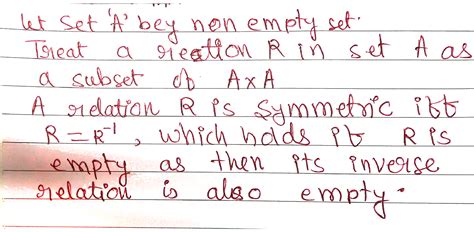 let Set 'A' bey non empty set.
Treat a relation R in set A as
a subset of A×A
A relation R is Symmetric iff
R = R⁻¹, which holds if R is
empty as then its inverse
relation is also empty.